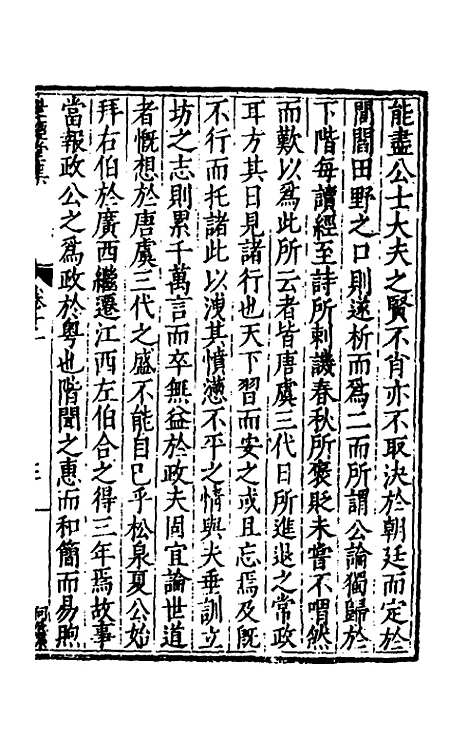 能盡公士大夫之賢不肖亦不取決於朝廷而定於
閭閻田野之口則遂析而爲二而所謂公論獨歸於
下階每讀經至詩所刺譏春秋所褒貶未嘗不喟然
而歎以爲此所云者皆唐虞三代日所進退之常政
耳方其日見諸行也天下習而安之或且忘焉及旣
不行而托諸此以洩其憤懣不平之情與夫垂訓立
坊之志則累千萬言而卒無益於政夫固宜論世道
者慨想於唐虞三代之盛不能自已乎松泉夏公始
拜右伯於廣西繼遷江西左伯合之得三年焉故事
當報政公之爲政於粵也階聞之惠而和簡而易煦
卷十一